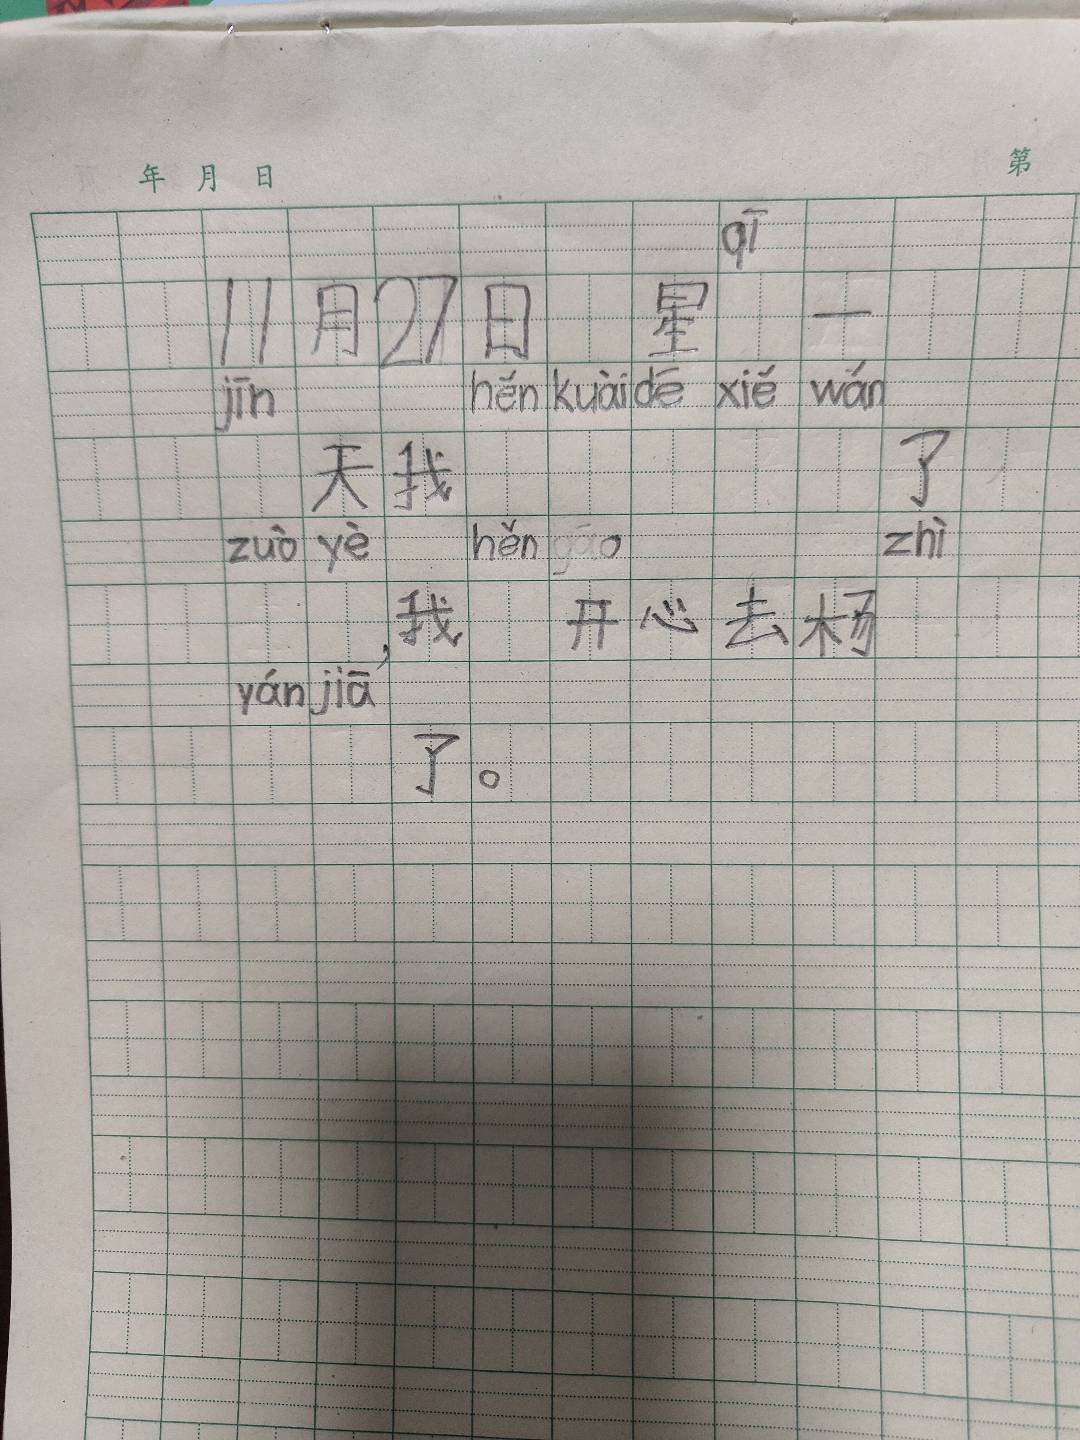 年 月 日 第
qī
11月27日 星 一
jīn hěn kuài dē xiě wán
天我 了
zuò yè hěn gāo zhì
,我 开心去杨
yán jiā
了。